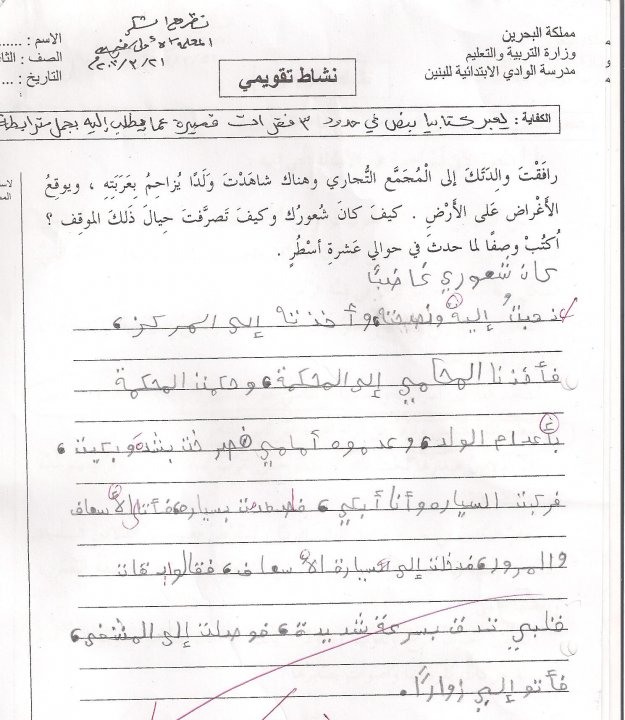 مملكة البحرين
وزارة التربية والتعليم
مدرسة الوادي الابتدائية للبنين
الاسم : ......
الصف :
التاريخ : ...
نشاط تقويمي
الكفاية : يعبر كتابيا بنص في حدود ٣ فقرات قصيرة عما يطلب إليه بجمل مترابطة
رافَقْتَ والِدَتَكَ إلى الْمُجَمَّع التُّجاري وهناك شاهَدْتَ وَلَدًا يُزاحِمُ بِعَرَبَتِهِ ، ويوقِعُ
الأَغْراض عَلى الأَرْضِ . كيفَ كانَ شعورُك وكيفَ تَصرَّفتَ حِيالَ ذَلكَ الموقِف ؟
اُكتُبْ وصفًا لما حدثَ في حوالي عَشرةِ أسْطُرٍ .
كان شعوري غاضبًا
ذهبتُ إلية ونصحته وأخذته إلى المركز،
فأخذنا المحامي إلى المحكمة، وحكمت المحكمة
بأعدام الولد، وعدموه أمامي، فصرخت بشدة وبكيت،
فركبت السياره وأنا أبكي، فاصطدمت بسياره، فأتى الأسعاف
والمرور، فدخلت إلى سيارة الأسعاف، فقالوا
قلبي تدق بسرعة شديدة، فوصلت إلى المشفى،
فأتو إلي زوارًا.